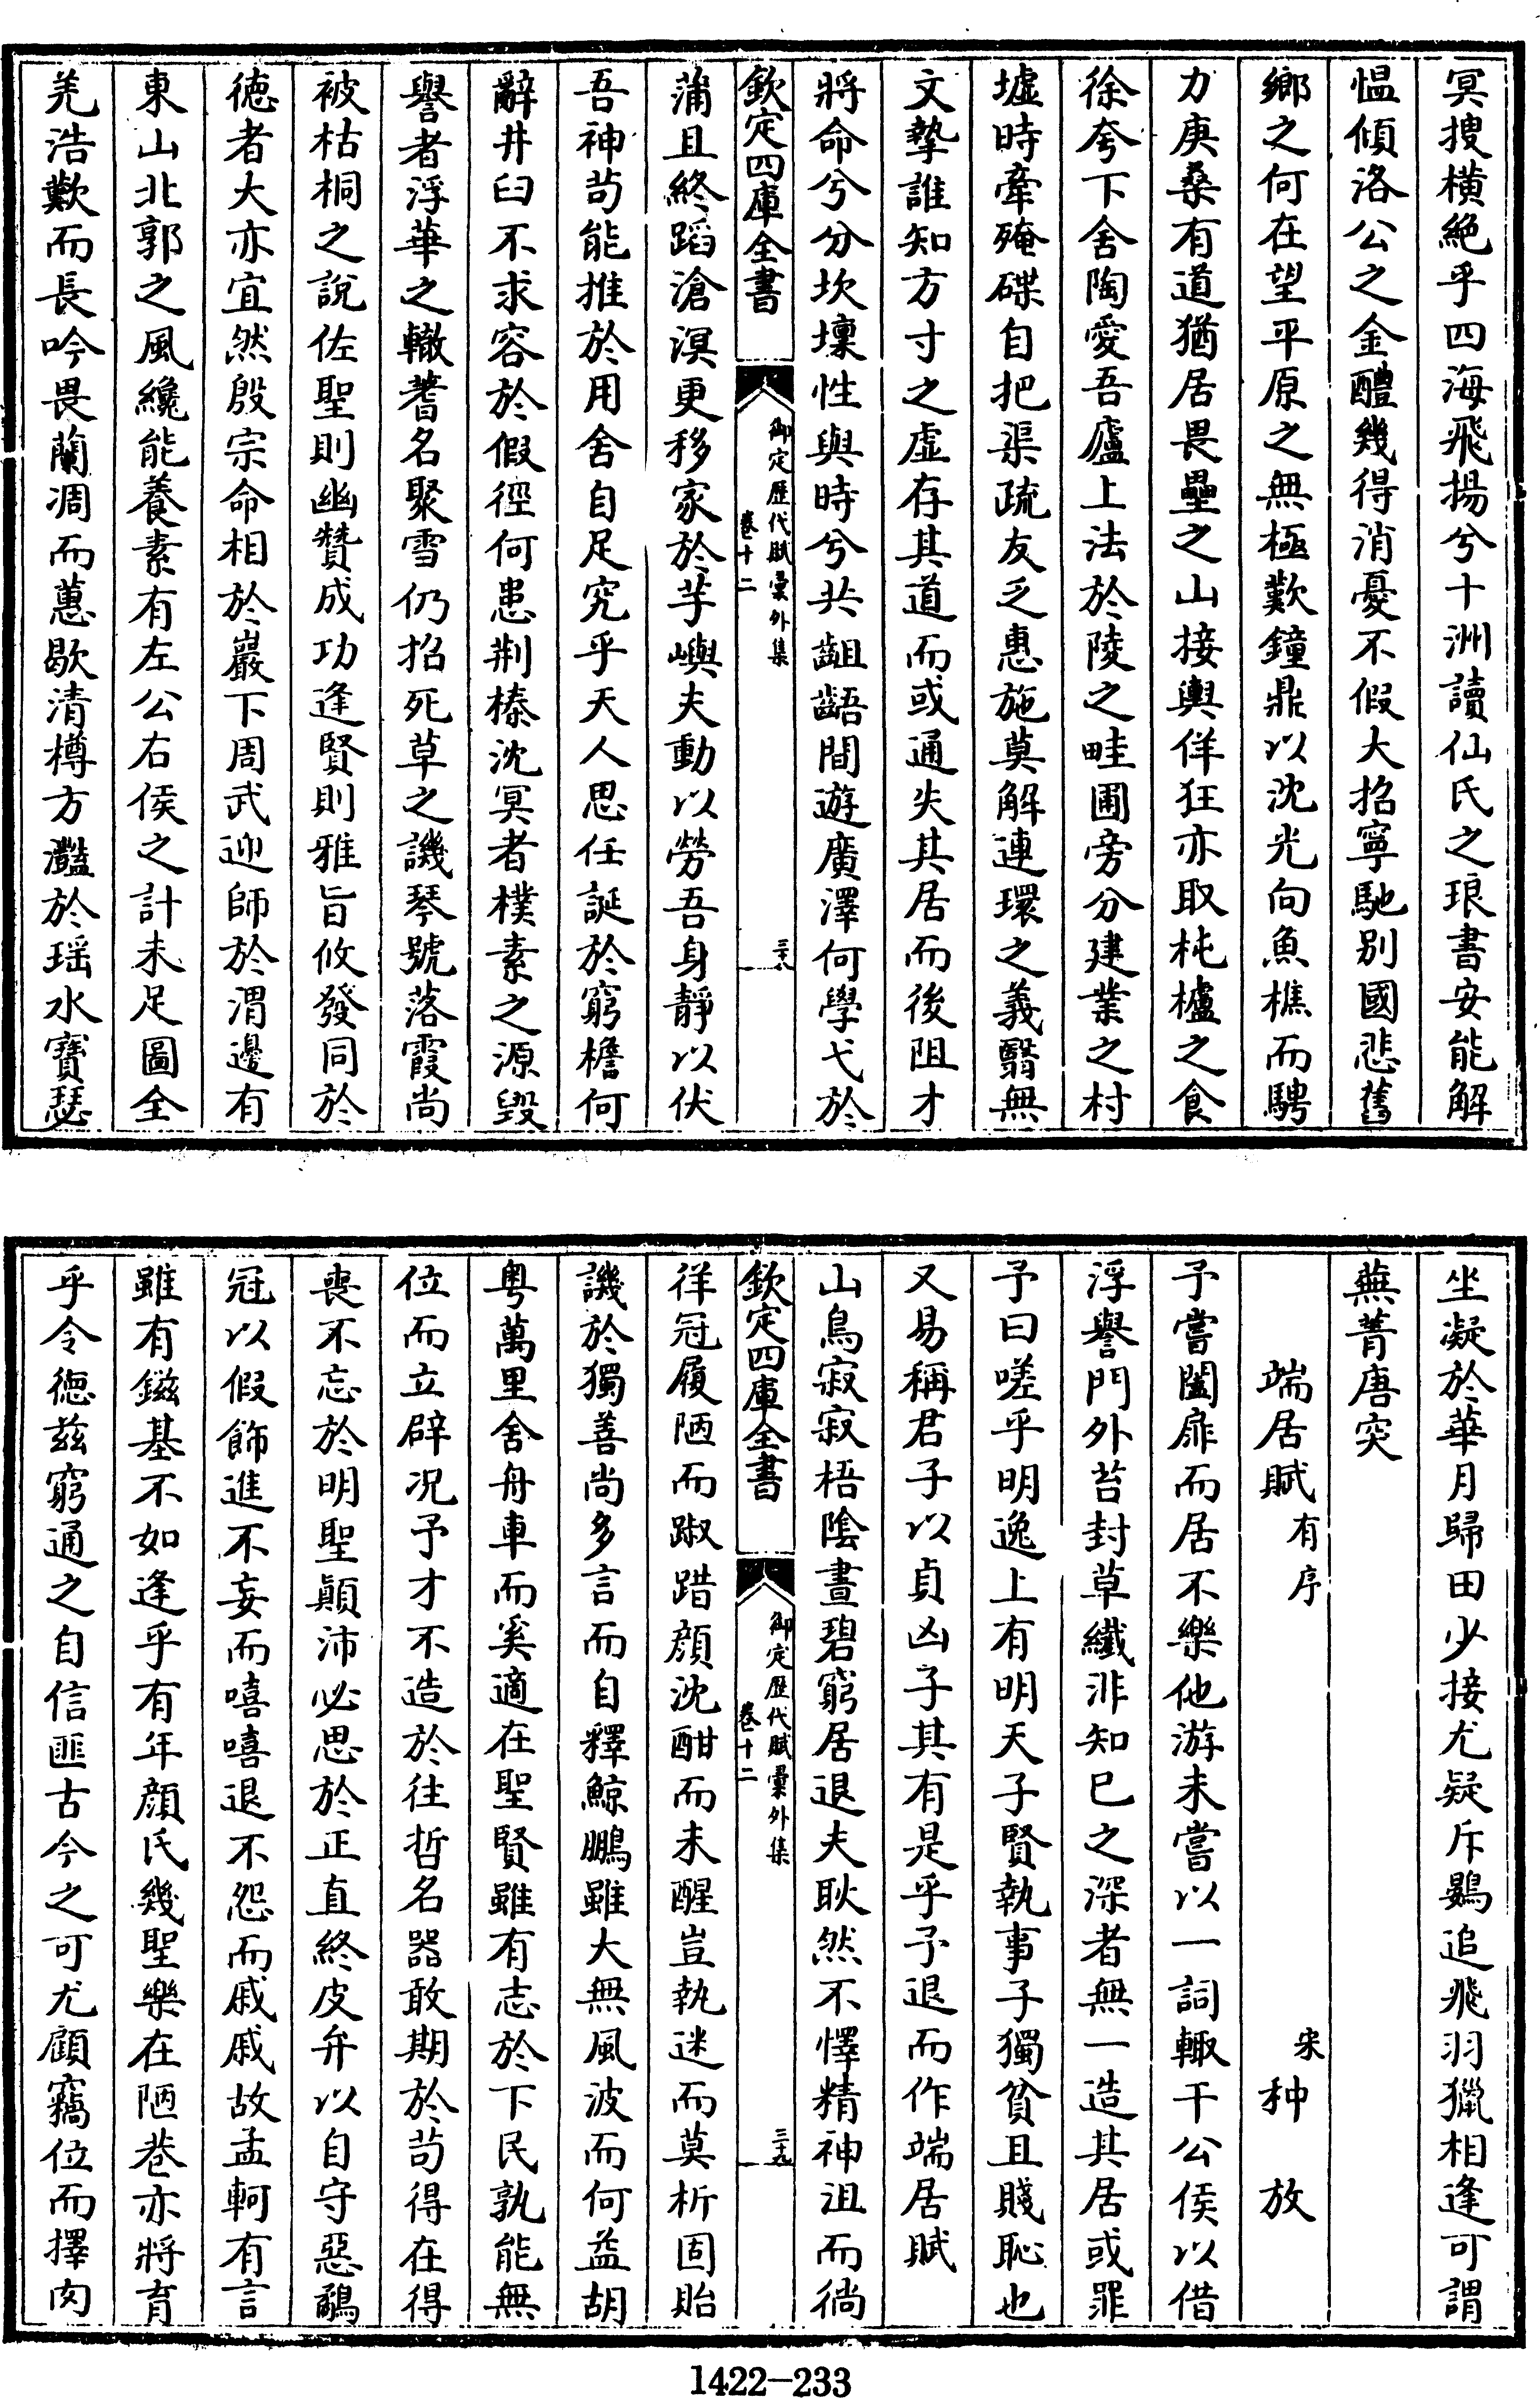 冥搜橫絶乎四海飛揚兮十洲讀仙氏之琅書安能解
愠傾洛公之金醴幾得消憂不假大招寧馳别國悲舊
鄉之何在望平原之無極歎鐘鼎以沈光向魚樵而騁
力庚桑有道猶居畏壘之山接輿佯狂亦取杶櫨之食
徐夸下舍陶愛吾廬上法於陵之畦圃旁分建業之村
墟時牽殗殜自把渠疏友乏惠施莫解連環之義翳無
文摯誰知方寸之虚存其道而或通失其居而後阻才
將命兮分坎壈性與時兮共齟齬間遊廣澤何學弋於
欽定四庫全書
御定歴代賦彙外集
卷十二
三十八
蒲且終蹈滄溟更移家於芋嶼夫動以勞吾身靜以伏
吾神茍能推於用舍自足究乎天人思任誕於窮檐何
辭井臼不求容於假徑何患荆榛沈冥者樸素之源毀
譽者浮華之轍蓍名聚雪仍招死草之譏琴號落霞尚
被枯桐之說佐聖則幽贊成功逢賢則雅旨攸發同於
徳者大亦宜然殷宗命相於巖下周武迎師於渭邊有
東山北郭之風纔能養素有左公右侯之計未足圖全
羌浩歎而長吟畏蘭凋而蕙歇清樽方灩於瑶水寶瑟
坐凝於華月歸田少接尤疑斥鷃追飛羽獵相逢可謂
蕪菁唐突
端居賦有序
宋种放
予嘗闔扉而居不樂他游未嘗以一詞輙干公侯以借
浮譽門外苔封草纖非知已之深者無一造其居或罪
予曰嗟乎明逸上有明天子賢執事子獨貧且賤恥也
又易稱君子以貞凶子其有是乎予退而作端居賦
山鳥寂寂梧陰晝碧窮居退夫耿然不懌精神沮而徜
欽定四庫全書
御定歴代賦彙外集
卷十二
三十九
徉冠履陋而踧踖顔沈酣而未醒豈執迷而莫析固貽
譏於獨善尚多言而自釋鯨鵬雖大無風波而何益胡
粤萬里舍舟車而奚適在聖賢雖有志於下民孰能無
位而立辟况予才不造於往哲名器敢期於茍得在得
喪不忘於明聖顚沛必思於正直終皮弁以自守惡鷸
冠以假飾進不妄而嘻嘻退不怨而戚戚故孟軻有言
雖有鎡基不如逢乎有年顔氏幾聖樂在陋巷亦將育
乎令徳兹窮通之自信匪古今之可尤顧竊位而擇肉
1422-233